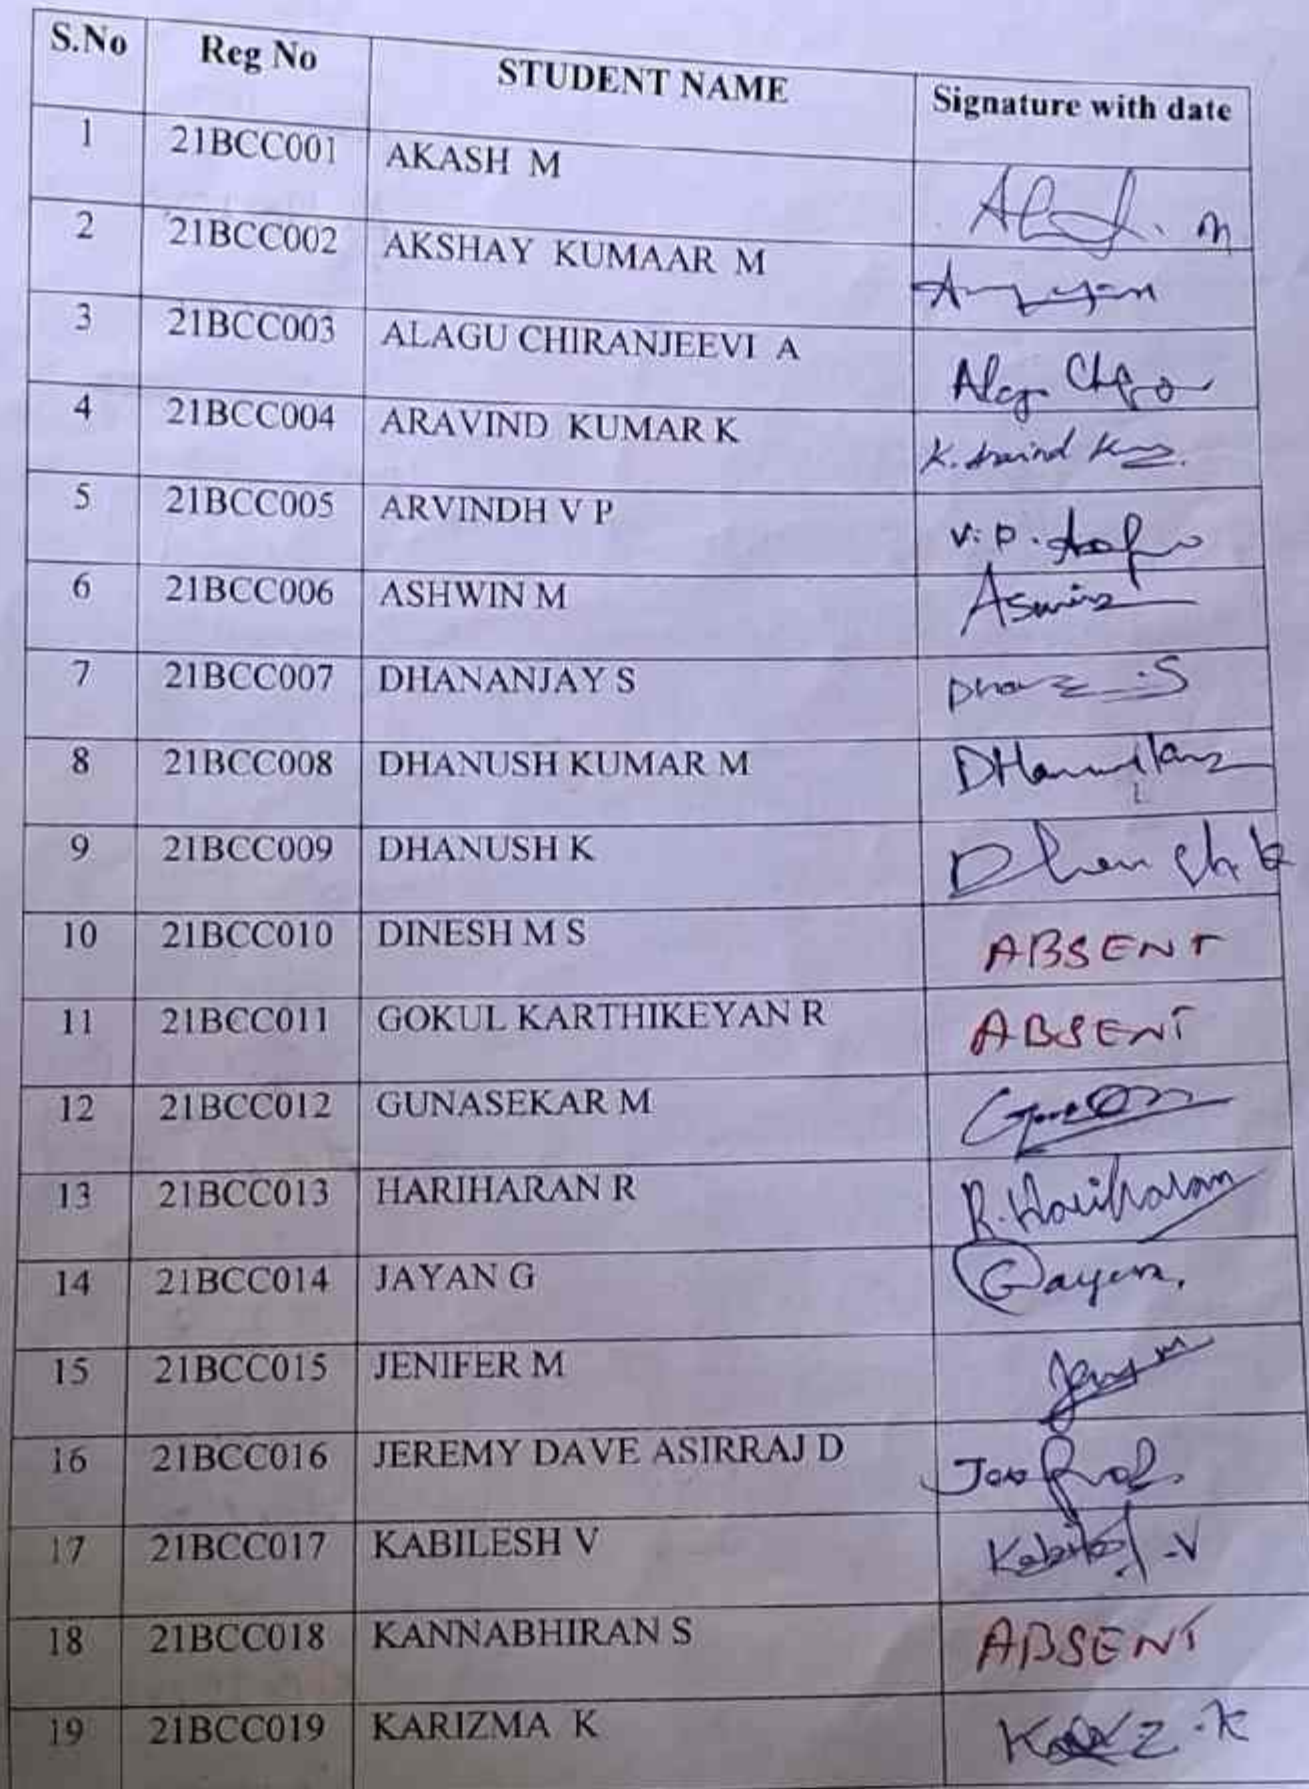 S.No Reg No STUDENT NAME Signature with date
1 21BCC001 AKASH M
2 21BCC002 AKSHAY KUMAAR M
3 21BCC003 ALAGU CHIRANJEEVI A
4 21BCC004 ARAVIND KUMAR K
5 21BCC005 ARVINDH V P V. P.
6 21BCC006 ASHWIN M
7 21BCC007 DHANANJAY S
8 21BCC008 DHANUSH KUMAR M
9 21BCC009 DHANUSH K
10 21BCC010 DINESH M S ABSENT
11 21BCC011 GOKUL KARTHIKEYAN R ABSENT
12 21BCC012 GUNASEKAR M
13 21BCC013 HARIHARAN R R. Hariharan
14 21BCC014 JAYAN G
15 21BCC015 JENIFER M
16 21BCC016 JEREMY DAVE ASIRRAJ D
17 21BCC017 KABILESH V
18 21BCC018 KANNABHIRAN S ABSENT
19 21BCC019 KARIZMA K